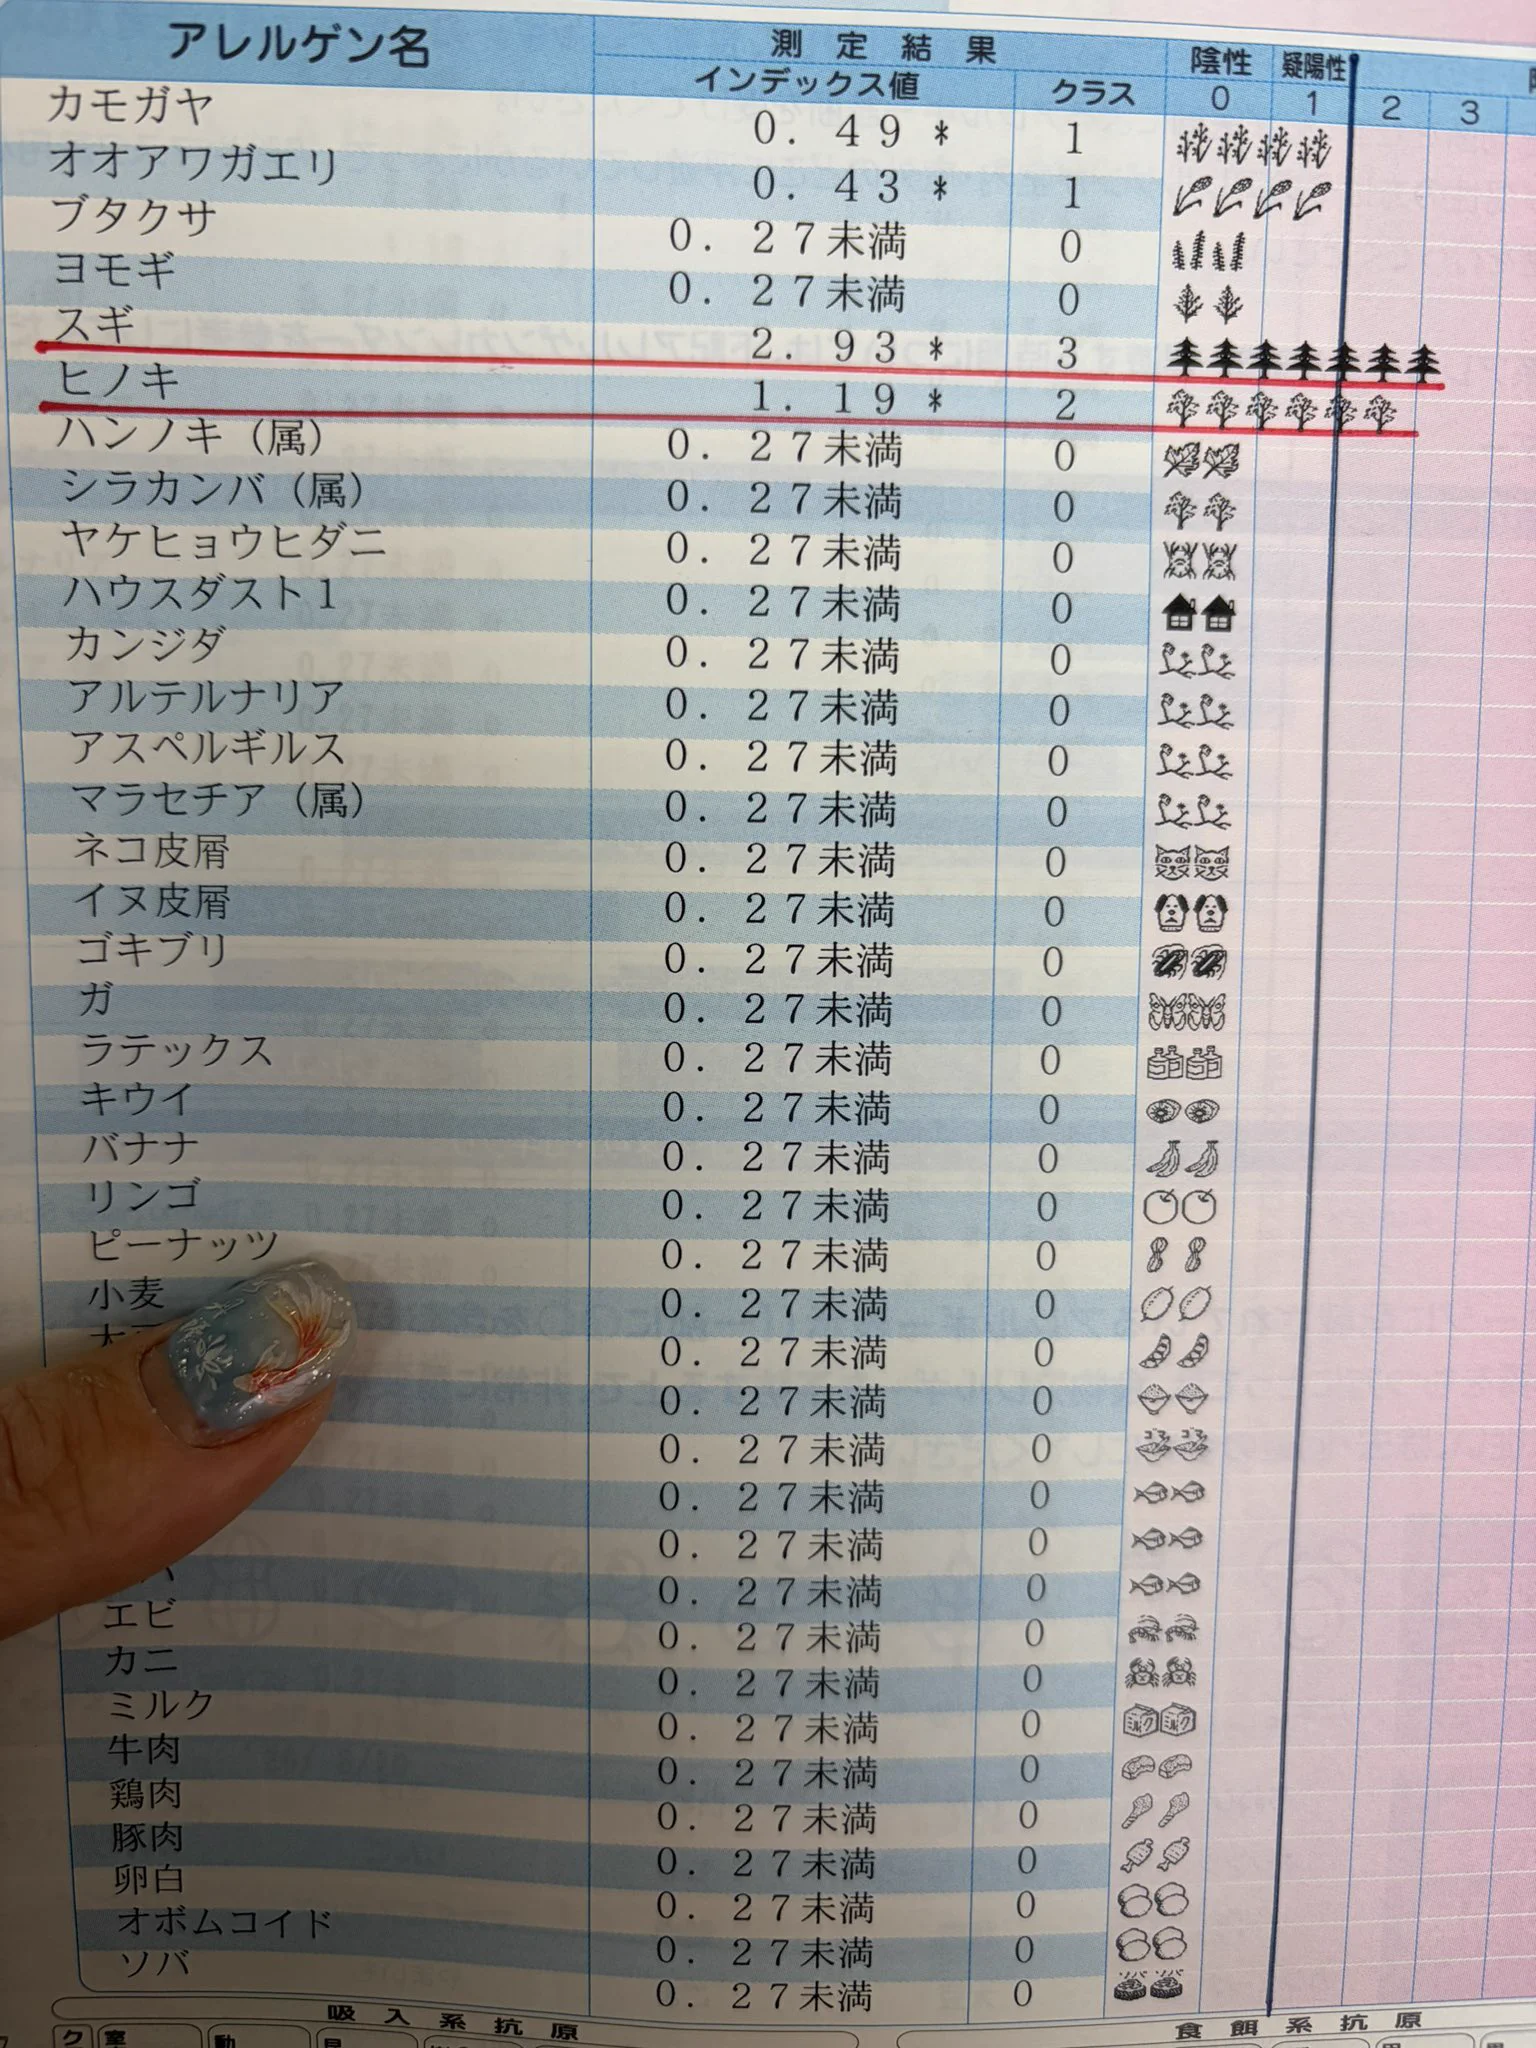 アレルゲン名 測定結果 陰性 疑陽性
インデックス値 クラス 0 1 2 3
カモガヤ 0.49* 1
オオアワガエリ 0.43* 1
ブタクサ 0.27未満 0
ヨモギ 0.27未満 0
スギ 2.93* 3
ヒノキ 1.19* 2
ハンノキ(属) 0.27未満 0
シラカンバ(属) 0.27未満 0
ヤケヒョウヒダニ 0.27未満 0
ハウスダスト1 0.27未満 0
カンジダ 0.27未満 0
アルテルナリア 0.27未満 0
アスペルギルス 0.27未満 0
マラセチア(属) 0.27未満 0
ネコ皮屑 0.27未満 0
イヌ皮屑 0.27未満 0
ゴキブリ 0.27未満 0
ガ 0.27未満 0
ラテックス 0.27未満 0
キウイ 0.27未満 0
バナナ 0.27未満 0
リンゴ 0.27未満 0
ピーナッツ 0.27未満 0
小麦 0.27未満 0
0.27未満 0
0.27未満 0
0.27未満 0 ゴマ ゴマ
0.27未満 0
0.27未満 0
0.27未満 0
エビ 0.27未満 0
カニ 0.27未満 0
ミルク 0.27未満 0
牛肉 0.27未満 0
鶏肉 0.27未満 0
豚肉 0.27未満 0
卵白 0.27未満 0
オボムコイド 0.27未満 0
ソバ 0.27未満 0 ソバ ソバ
吸入系抗原 食餌系抗原